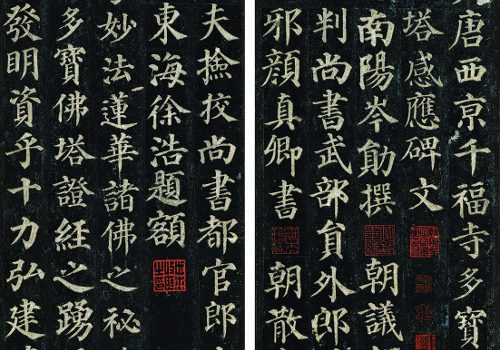 唐西亰千福寺多寶
塔感應碑文
南陽岑勛撰 朝議
判尚書武部貟外郎
邪顏真卿書 朝散
夫撿挍尚書都官郎
東海徐浩題額
妙法蓮華諸佛之秘
多寶佛塔證經之踴
發明資乎十力弘建